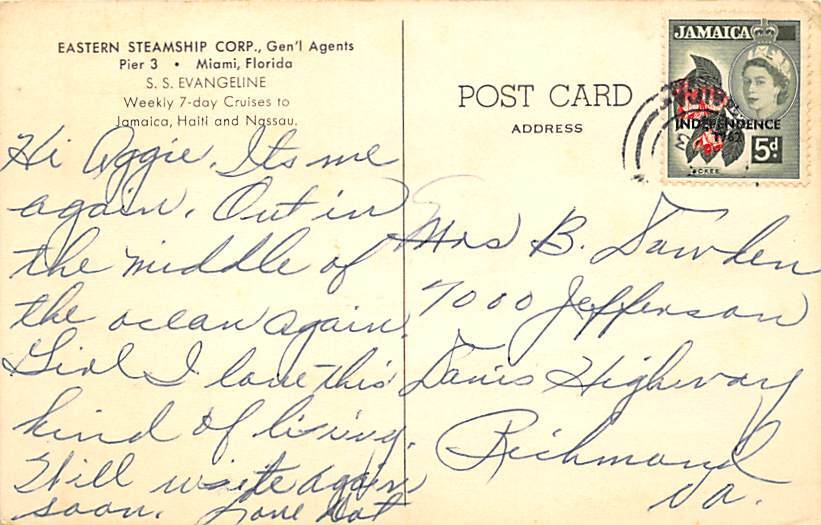 EASTERN STEAMSHIP CORP., Gen'l Agents
Pier 3 • Miami, Florida
S. S. EVANGELINE
Weekly 7-day Cruises to
Jamaica, Haiti and Nassau.
Hi Aggie. Its me
again. Out in
the middle of
the ocean again.
Girl I love this
kind of living.
Will write again
soon. Love Dot
POST CARD
ADDRESS
JAMAICA
INDEPENDENCE
1962
ACKEE
5d
Mrs B. Dawden
7000 Jefferson
Davis Highway
Richmond
Va.